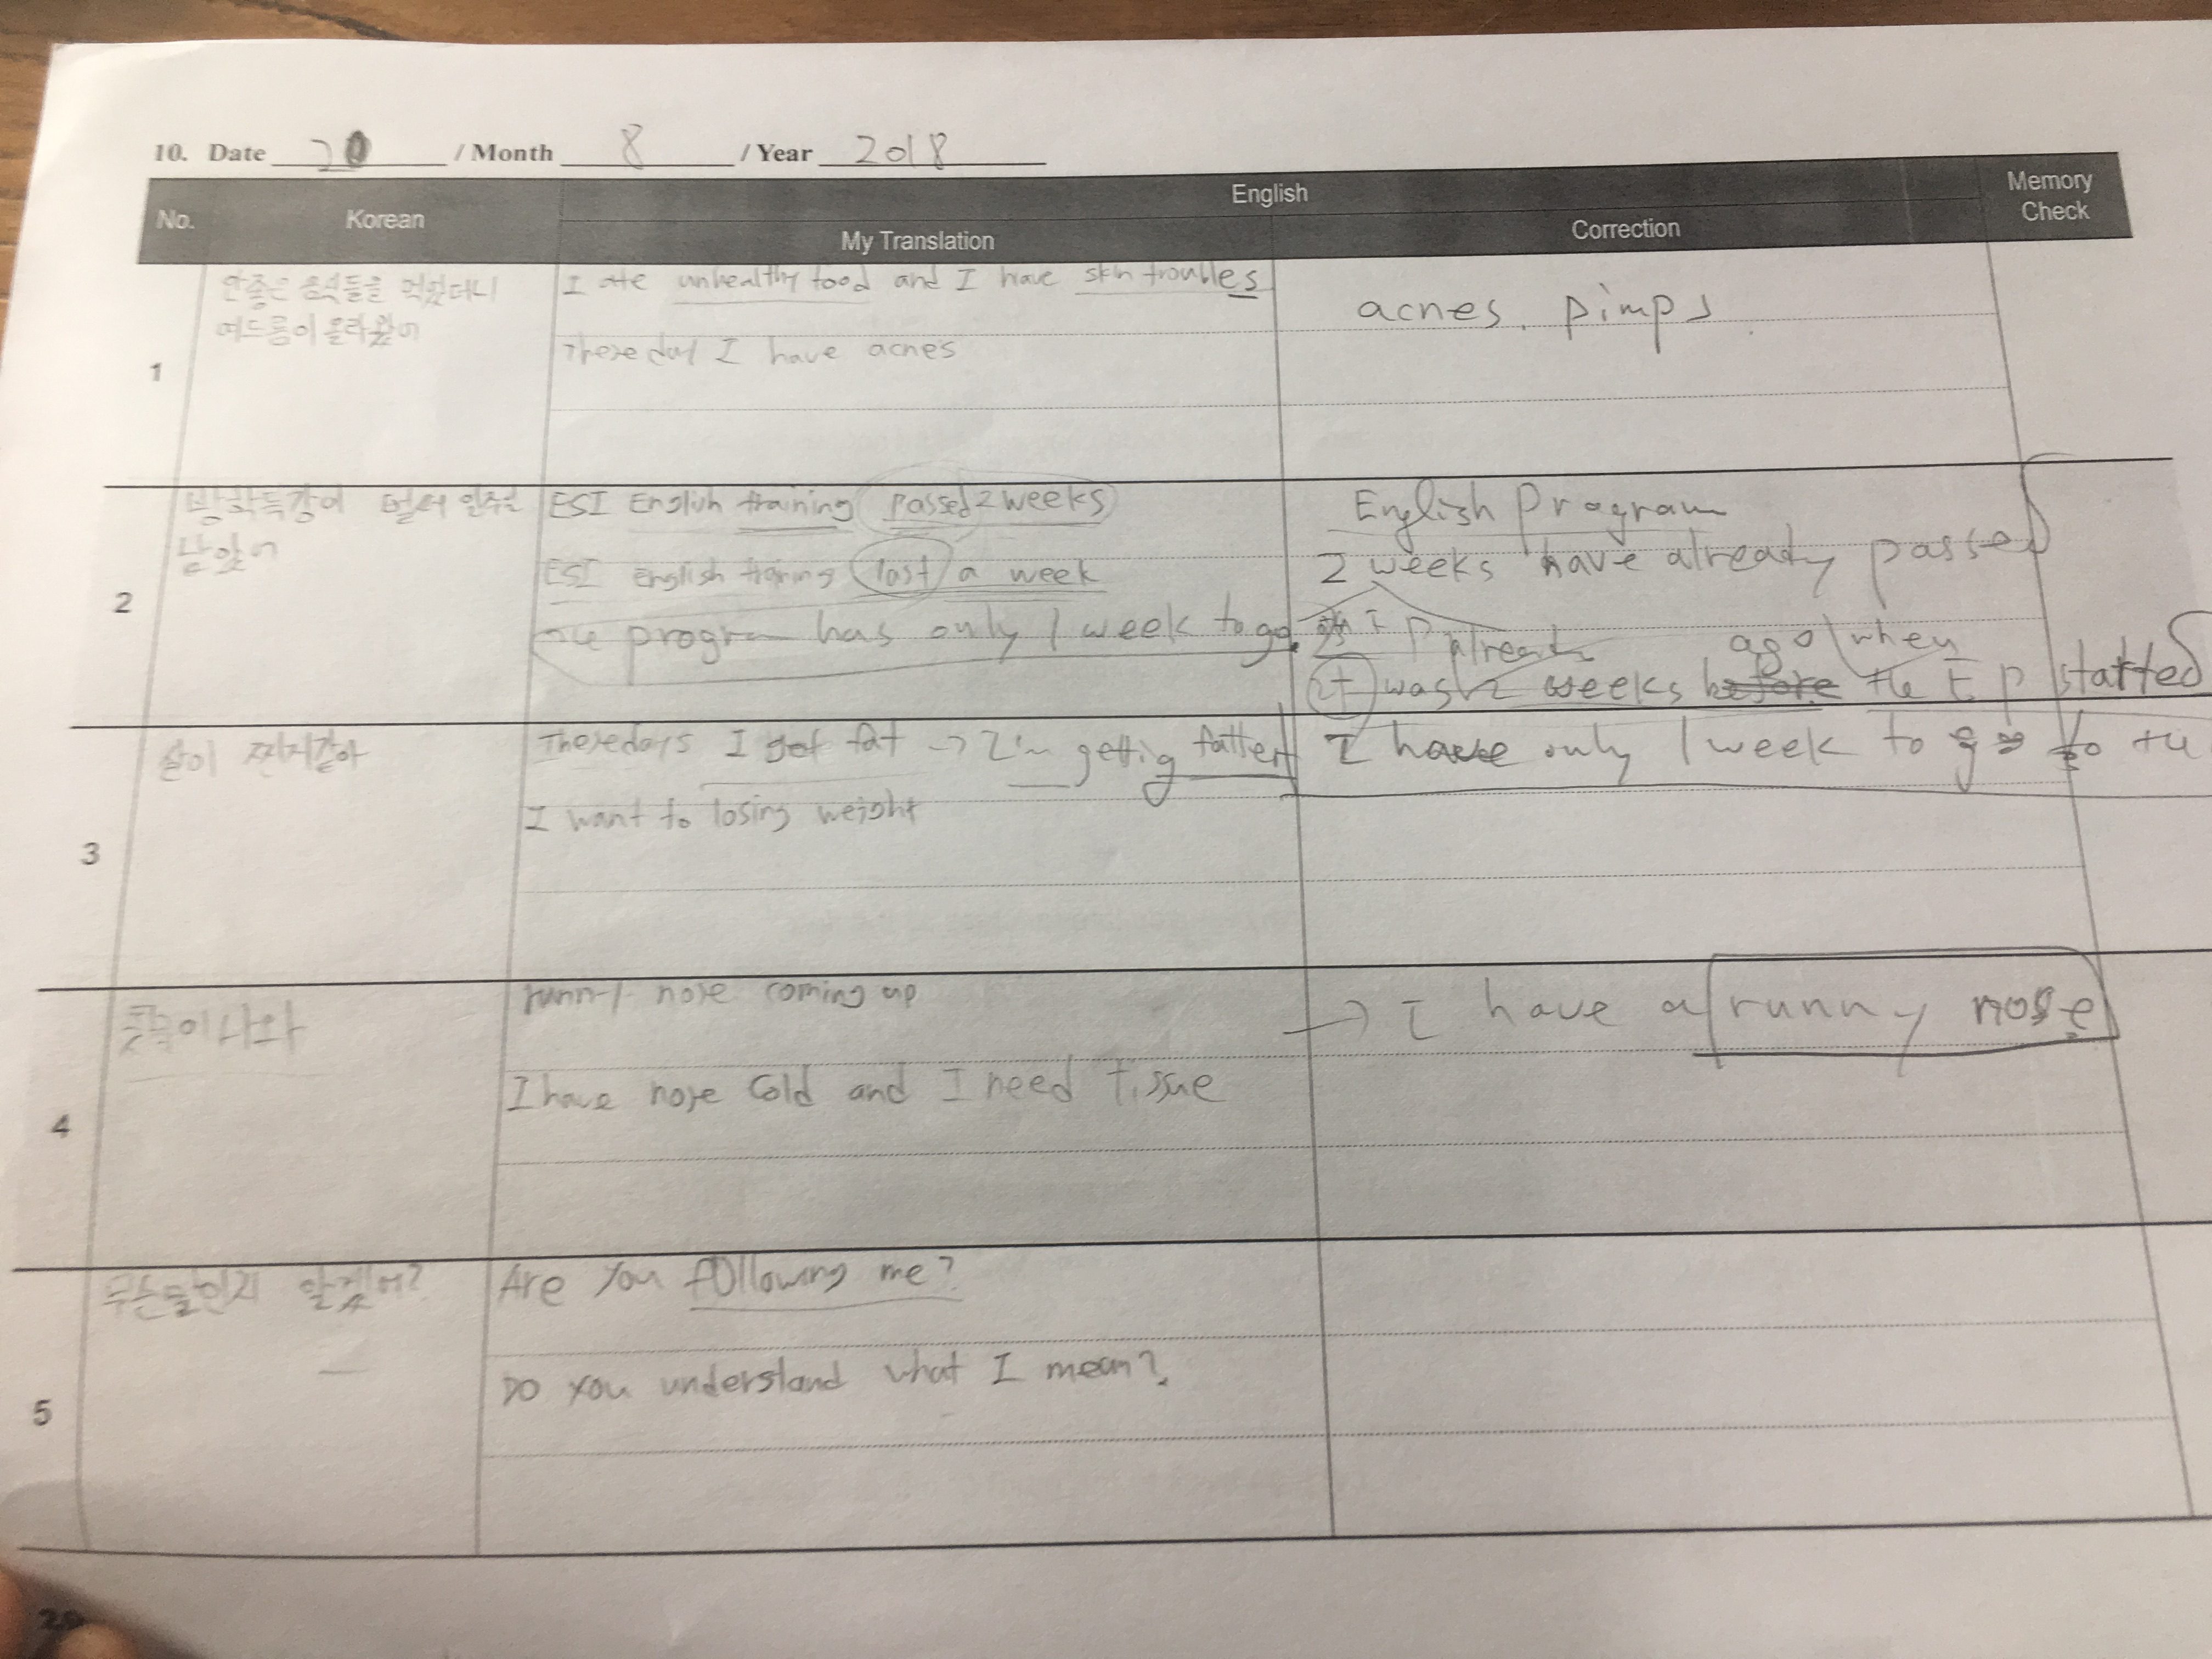 10. Date 20 / Month 8 / Year 2018
No. Korean English Memory Check
My Translation Correction
1
안좋은 음식들을 먹었더니
여드름이 올라왔어
I ate unhealthy food and I have skin troubles
These day I have acnes
acnes. pimps
2
방학특강이 벌써 일주일
남았어
ESI English training passed 2 weeks
ESI english training last a week
the program has only 1 week to go.
English Program
2 weeks have already passed
already ago when
It was 2 weeks before the E P started
I have only 1 week to go to the
3
살이 찐거같아
Thesedays I get fat → I'm gettig fatter
I want to losing weight
4
콧물이나와
runny nose coming up
I have nose cold and I need tissue
→ I have a runny nose
5
무슨말인지 알겠어?
Are you following me?
Do you understand what I mean?